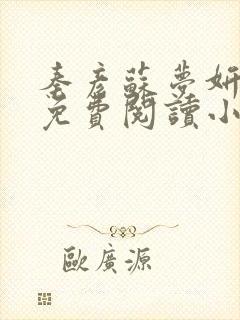 秦彥蘇夢妍
免費閱讀小
歐廣源